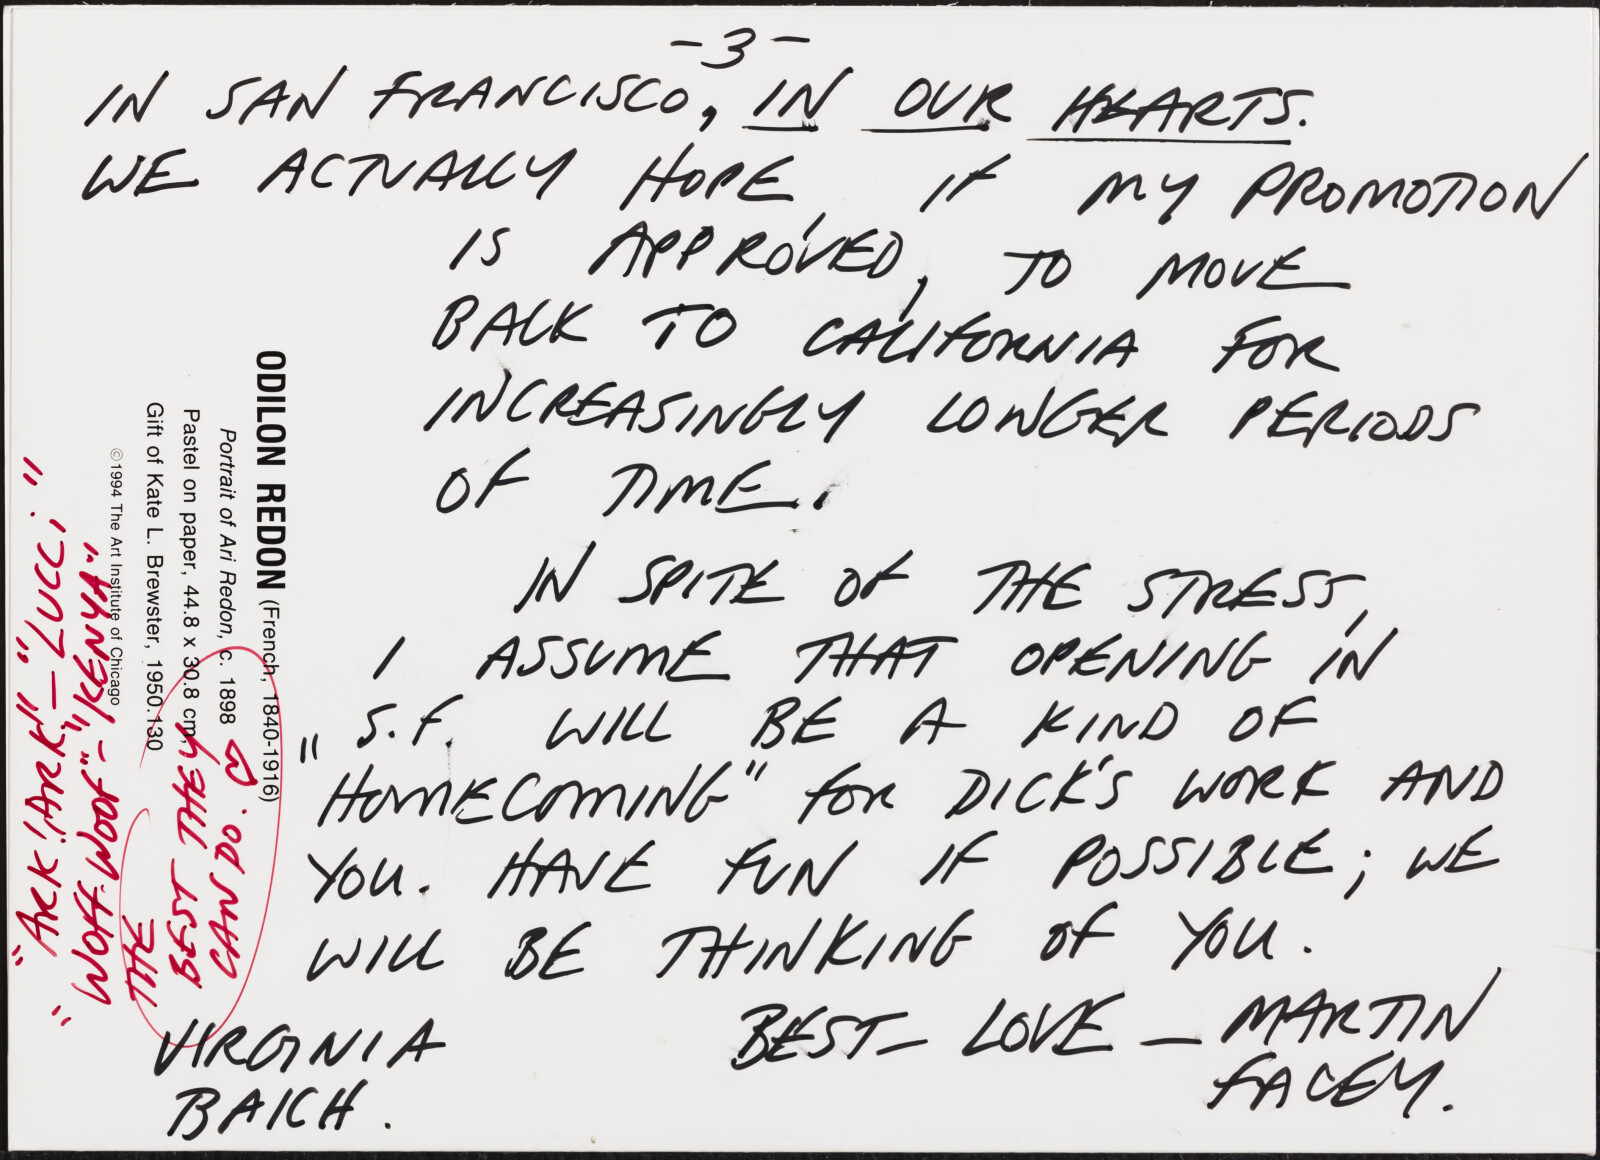 -3-
IN SAN FRANCISCO, IN OUR HEARTS.
WE ACTUALLY HOPE, IF MY PROMOTION
IS APPROVED, TO MOVE
BACK TO CALIFORNIA FOR
INCREASINGLY LONGER PERIODS
OF TIME.
IN SPITE OF THE STRESS,
I ASSUME THAT OPENING IN
S.F. WILL BE A KIND OF
"HOMECOMING" FOR DICK'S WORK AND
YOU. HAVE FUN IF POSSIBLE; WE
WILL BE THINKING OF YOU.
BEST – LOVE – MARTIN
FACEY.
VIRGINIA
BAICH.
ODILON REDON (French, 1840-1916)
Portrait of Ari Redon, c. 1898
Pastel on paper, 44.8 x 30.8 cm,
Gift of Kate L. Brewster, 1950.130
©1994 The Art Institute of Chicago
"ARK! ARK" – "LUCCI"
"WOFF-WOOF" – "KENYA"
THE
BEST THEY
CAN DO.